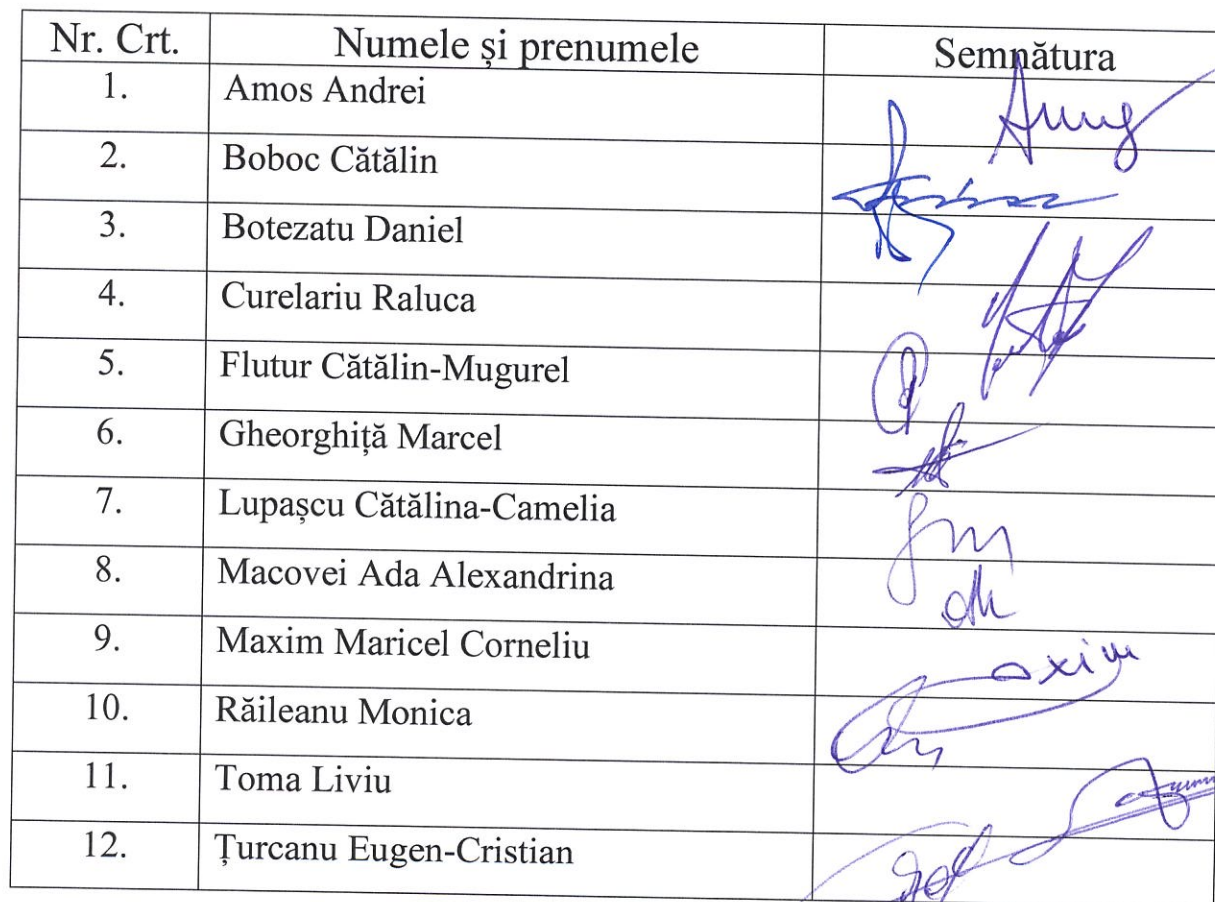 Nr. Crt. Numele și prenumele Semnătura
1. Amos Andrei
2. Boboc Cătălin
3. Botezatu Daniel
4. Curelariu Raluca
5. Flutur Cătălin-Mugurel
6. Gheorghiță Marcel
7. Lupașcu Cătălina-Camelia
8. Macovei Ada Alexandrina
9. Maxim Maricel Corneliu
10. Răileanu Monica
11. Toma Liviu
12. Țurcanu Eugen-Cristian